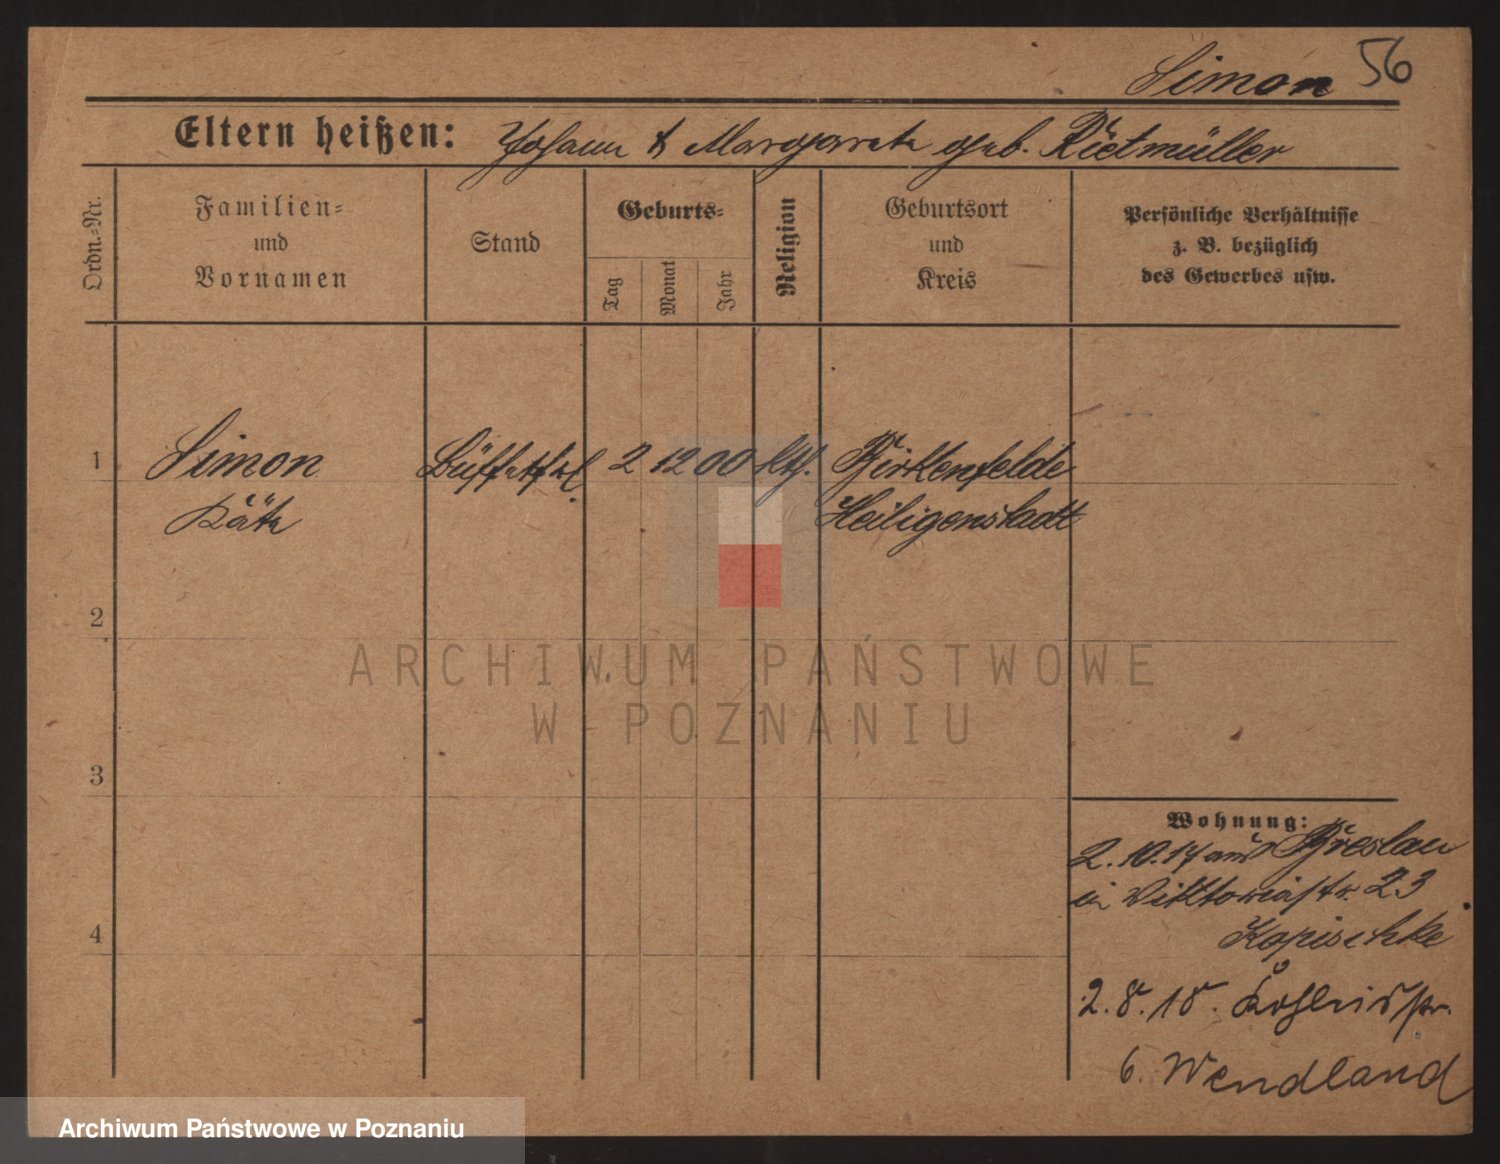 Simon 56
Eltern heißen: Johann & Margarete geb. Rietmüller
Ordn.-Nr.
Familien- und Vornamen
Stand
Geburts-
Tag
Monat
Jahr
Religion
Geburtsort und Kreis
Persönliche Verhältnisse
z. B. bezüglich
des Gewerbes usw.
1 Simon Büffetfrl. 2 12 00 kth. Birkenfelde
Käte Heiligenstadt
2
3
4
ARCHIWUM PAŃSTWOWE
W POZNANIU
Wohnung:
2.10.17 aus Breslau
in Viktoriastr. 23
Kopischke
2.8.18.
6. Wendland
Archiwum Państwowe w Poznaniu